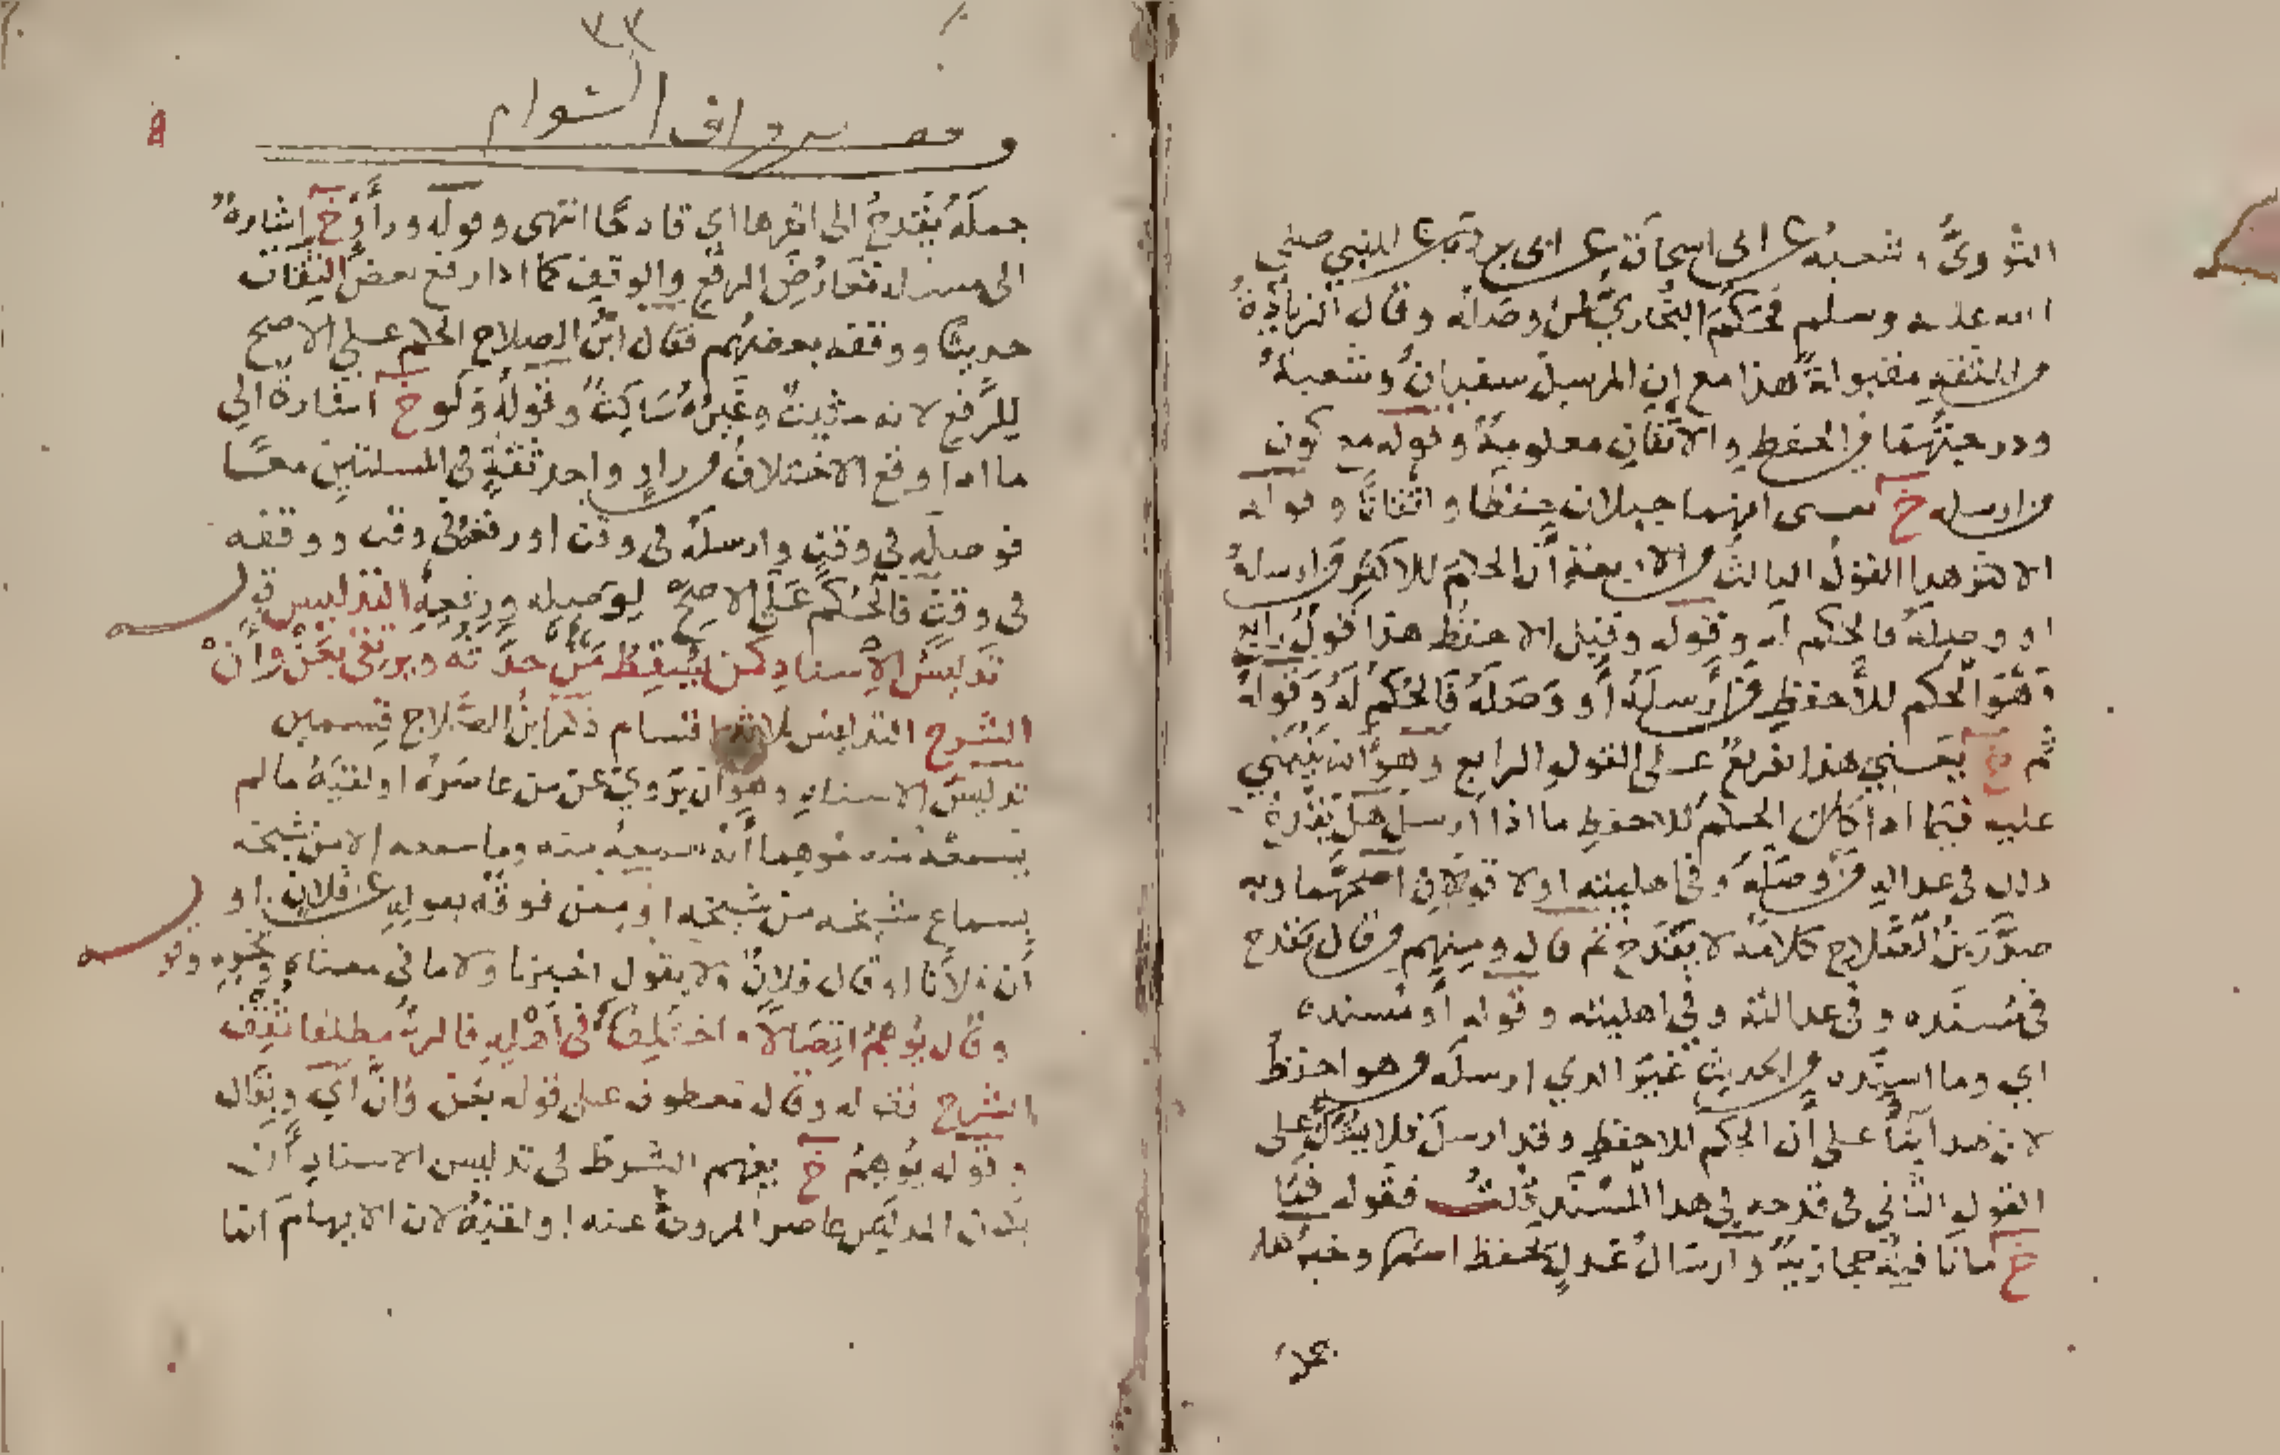 الثوري وشعبة عن ابي اسحاق عن ابي بردة عن النبي صلى
الله عليه وسلم فحكم البخاري لمن وصله وقال الزيادة
من الثقة مقبولة هذا مع ان المرسل سفيان وشعبة
ودرجتهما في الحفظ والاتقان معلومة وقوله مع كون
من ارسله خ يعني انهما جبلان حفظا واتقانا وقوله
الاكثر هذا القول الثالث من الاربعة أن الحكم للاكثر من ارسله
او وصله فالحكم له وقوله وقيل الاحفظ هذا قول رابع
وهو الحكم للأحفظ من أرسله أو وصله فالحكم له وقوله
ثم خ يعني هذا تفريع على القول الرابع وهو ان ينبني
عليه فيما اذا كان الحكم للاحفظ ما اذا ارسل هل يقدح
ذلك في عدالة من وصله وفي اهليته اولا قولان اصحهما وبه
صدر بن الصلاح كلامه لا يقدح ثم قال ومنهم من قال يقدح
في مسنده وفي عدالته وفي اهليته وقوله او مسنده
اي وما اسنده من الحديث غير الذي ارسله من هو احفظ
لان فرضنا على أن الحكم للاحفظ وقد ارسل فلا يدل على
القول الثاني في قدحه في هذا المسند قلت فقوله فما
خ ما نافية حجازية وارسال عدل يحفظ اسمها وخبرها
بجملة
وقف برواق الشوام
جملة يقدح الى اخرها اي قادحا انتهى وقوله ورأوا خ اشارة
الى مسئلة تعارض الرفع والوقف كما اذا رفع بعض الثقات
حديثا ووقفه بعضهم فقال ابن الصلاح الحكم على الاصح
للرفع لانه مثبت وغيره ساكت وقوله ولو خ اشارة الى
ما اذا وقع الاختلاف من راو واحد ثقة في المسئلتين معا
فوصله في وقت وارسله في وقت او رفعه في وقت ووقفه
في وقت فالحكم على الاصح لوصله ورفعه التدليس
تدليس الإسناد كمن يسقط من حدثه ويرتقي بعن وأن
الشرح التدليس ثلاثة اقسام ذكر ابن الصلاح قسمين
تدليس الاسناد وهو أن يروي عن من عاصره او لقيه ما لم
يسمعه منه موهما أنه سمعه منه وما سمعه الا من شيخه
بسماع شيخه من شيخه او ممن فوقه بقوله عن فلان او
أن فلانا او قال فلان ولا يقول اخبرنا ولا ما في معناه ونحوه
وقال يوهم اتصالا واختلف في أهله فالرد مطلقا ثقف
الشرح فقوله وقال معطوف على قوله بعن وأن اي وبقال
وقوله يوهم خ يفهم الشرط في تدليس الاسناد أن
يكون المدلس عاصر المروي عنه او لقيه لان الايهام انما